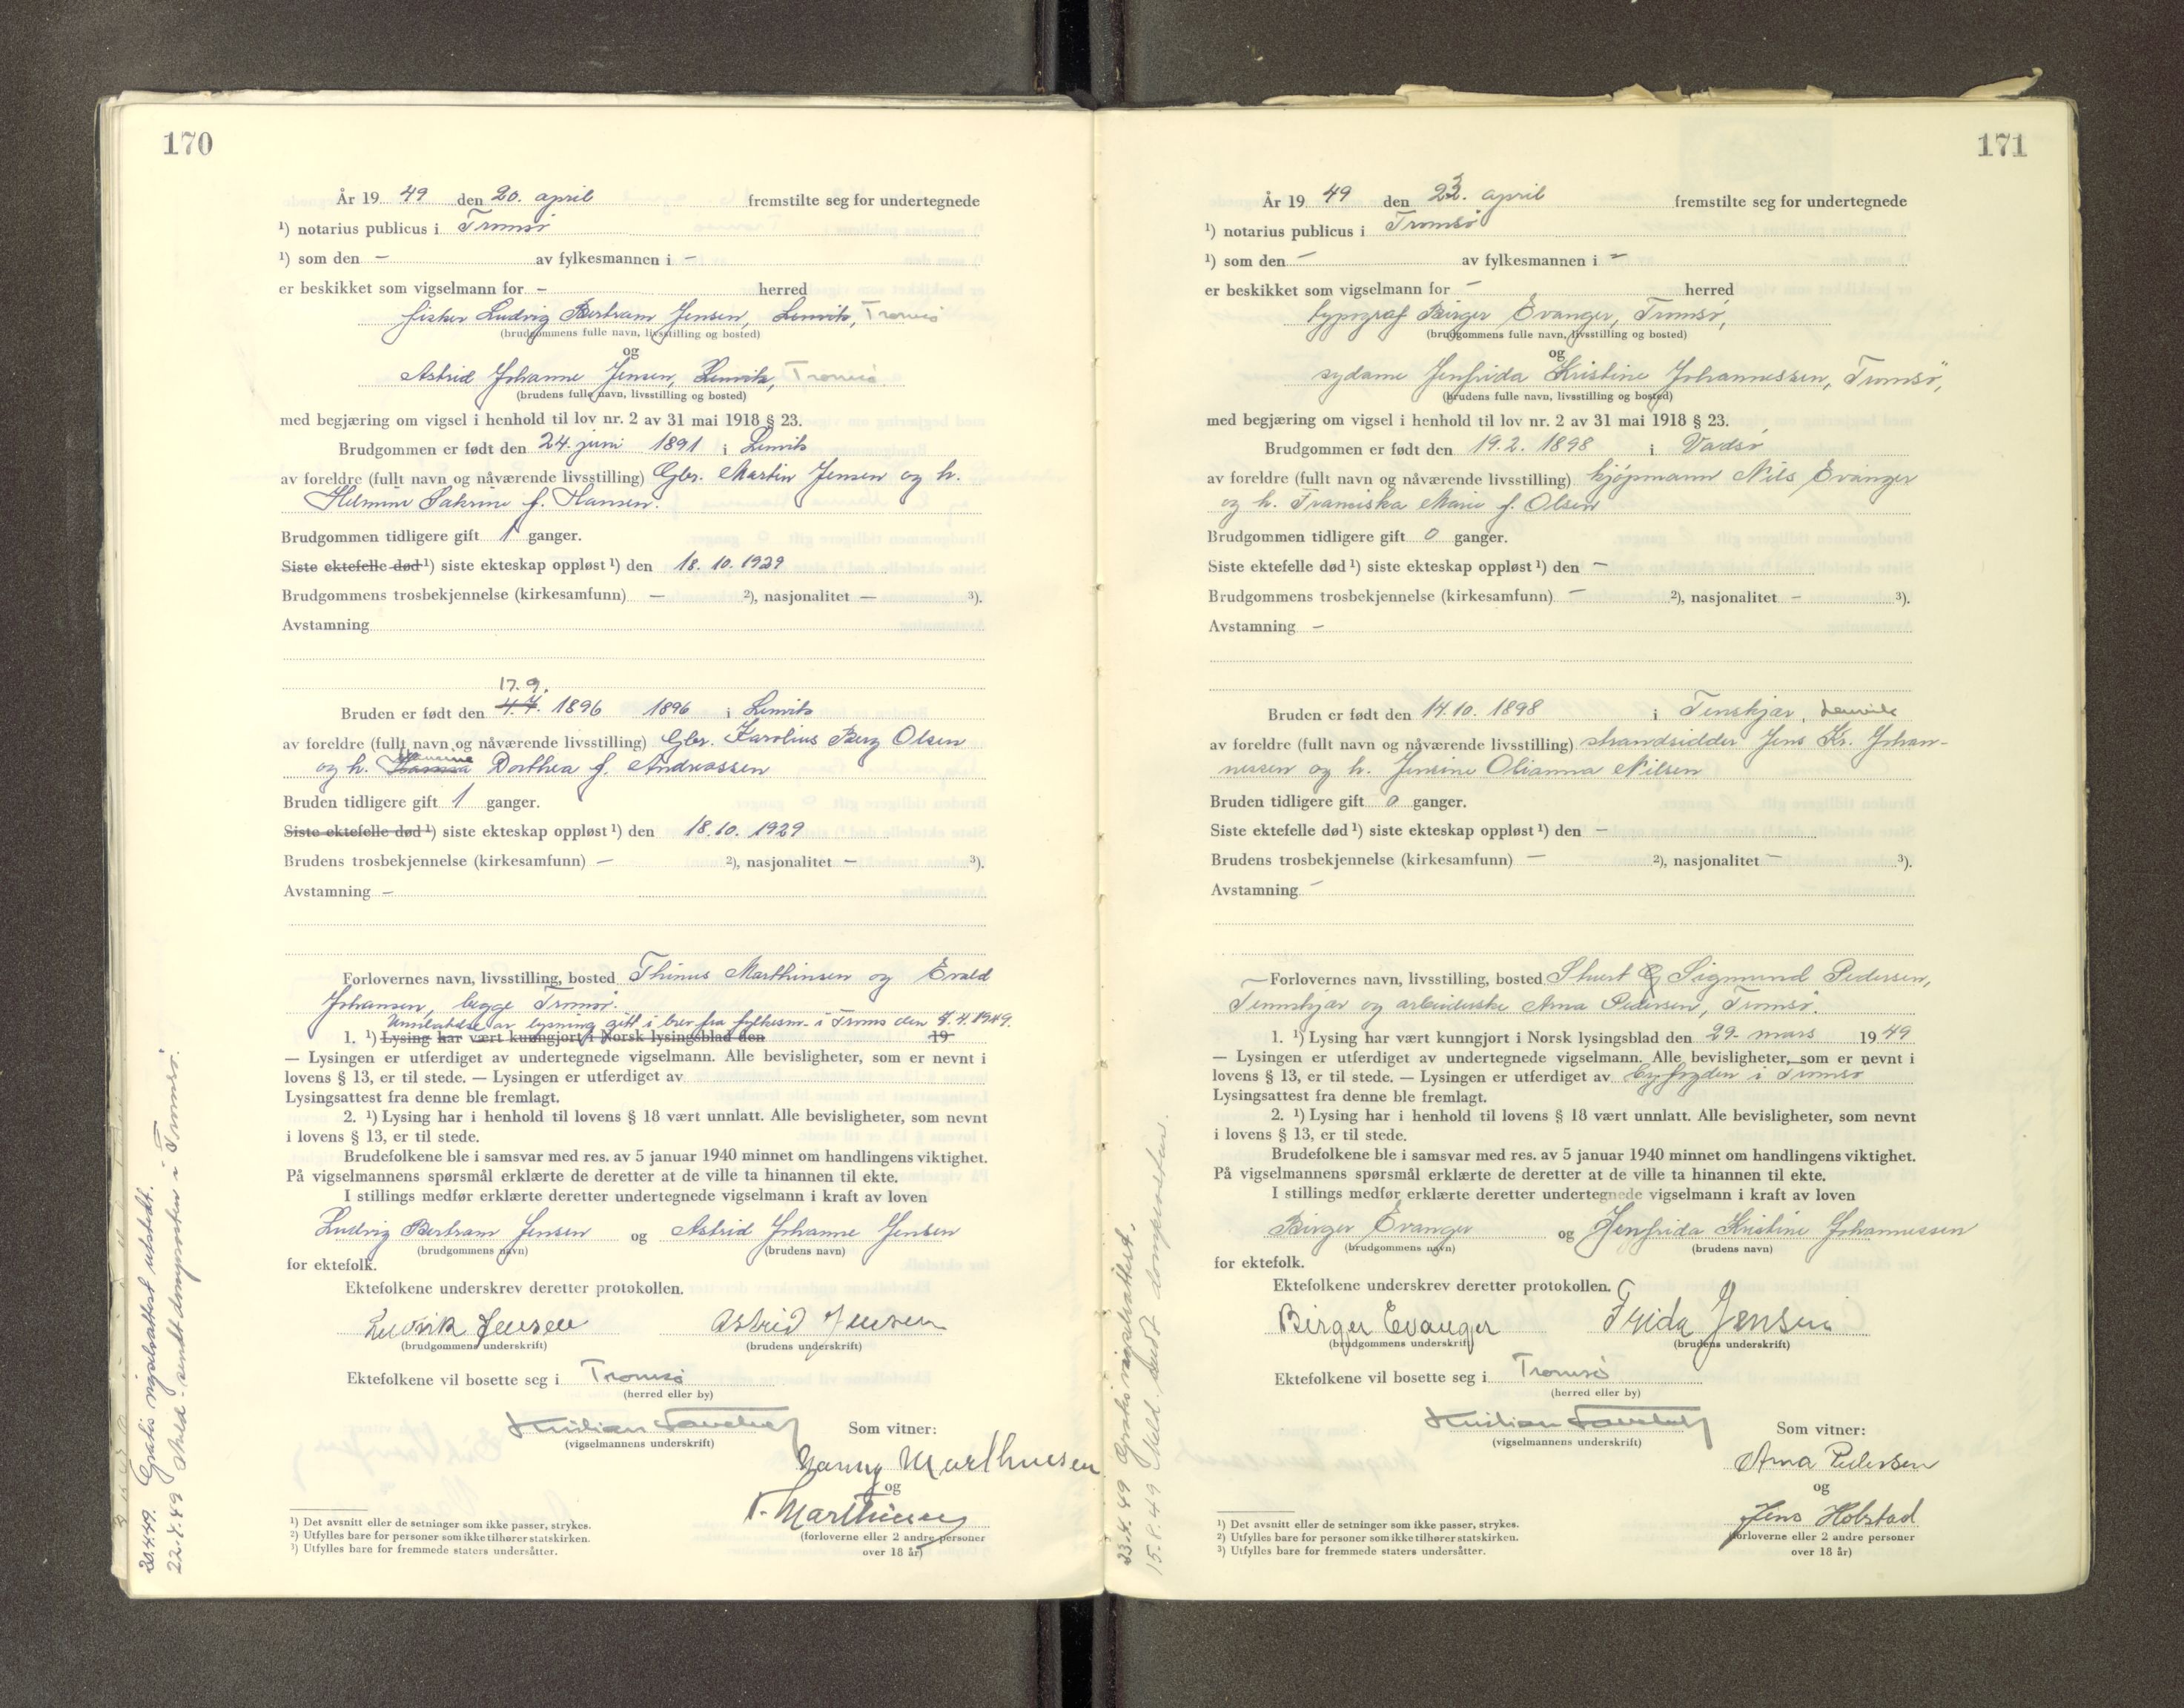 170
År 19 49 den 20. april fremstilte seg for undertegnede
¹) notarius publicus i Tromsø
¹) som den – av fylkesmannen i –
er beskikket som vigselmann for – herred
fisker Ludvig Bertram Jensen, Lenvik, Tromsø
(brudgommens fulle navn, livsstilling og bosted)
og
Astrid Johanne Jensen, Lenvik, Tromsø
(brudens fulle navn, livsstilling og bosted)
med begjæring om vigsel i henhold til lov nr. 2 av 31 mai 1918 § 23.
Brudgommen er født den 24. juni 1891 i Lenvik
av foreldre (fullt navn og nåværende livsstilling) Gbr. Martin Jensen og h.
Helmine Sakrine f. Hansen.
Brudgommen tidligere gift 1 ganger.
Siste ektefelle død ¹) siste ekteskap oppløst ¹) den 18. 10. 1929
Brudgommens trosbekjennelse (kirkesamfunn) — ²), nasjonalitet — ³).
Avstamning
17. 9.
Bruden er født den 4. 7. 1896 1896 i Lenvik
av foreldre (fullt navn og nåværende livsstilling) Gbr. Karolius Berg Olsen
og h. Hanna Dorthea f. Andreassen
Bruden tidligere gift 1 ganger.
Siste ektefelle død ¹) siste ekteskap oppløst ¹) den 18. 10. 1929
Brudens trosbekjennelse (kirkesamfunn) — ²), nasjonalitet — ³).
Avstamning –
Forlovernes navn, livsstilling, bosted Thinus Marthinsen og Evald
Johansen, begge Tromsø.
Unnlatelse av lysning gitt i brev fra fylkesm. i Troms den 7. 4. 1949.
1. ¹) Lysing har vært kunngjort i Norsk lysingsblad den 19
— Lysingen er utferdiget av undertegnede vigselmann. Alle bevisligheter, som er nevnt i
lovens § 13, er til stede. — Lysingen er utferdiget av
Lysingsattest fra denne ble fremlagt.
2. ¹) Lysing har i henhold til lovens § 18 vært unnlatt. Alle bevisligheter, som nevnt
i lovens § 13, er til stede.
Brudefolkene ble i samsvar med res. av 5 januar 1940 minnet om handlingens viktighet.
På vigselmannens spørsmål erklærte de deretter at de ville ta hinannen til ekte.
I stillings medfør erklærte deretter undertegnede vigselmann i kraft av loven
Ludvig Bertram Jensen og Astrid Johanne Jensen
(brudgommens navn) (brudens navn)
for ektefolk.
Ektefolkene underskrev deretter protokollen.
Ludvik Jensen Astrid Jensen
(brudgommens underskrift) (brudens underskrift)
Ektefolkene vil bosette seg i Tromsø
(herred eller by)
(vigselmannens underskrift)
Som vitner:
Marthinsen
og
T. Marthinsen
(forloverne eller 2 andre personer
over 18 år)
¹) Det avsnitt eller de setninger som ikke passer, strykes.
²) Utfylles bare for personer som ikke tilhører statskirken.
³) Utfylles bare for fremmede staters undersåtter.
20.4.49. Gratis vigselsattest utstedt.
22.4.49 Meld. sendt domprosten i Tromsø.
171
År 19 49 den 23. april fremstilte seg for undertegnede
¹) notarius publicus i Tromsø
¹) som den – av fylkesmannen i –
er beskikket som vigselmann for – herred
typograf Birger Evanger, Tromsø,
(brudgommens fulle navn, livsstilling og bosted)
og
sydame Jenfrida Kristine Johannessen, Tromsø,
(brudens fulle navn, livsstilling og bosted)
med begjæring om vigsel i henhold til lov nr. 2 av 31 mai 1918 § 23.
Brudgommen er født den 19. 2. 1898 i Vadsø
av foreldre (fullt navn og nåværende livsstilling) kjøpmann Nils Evanger
og h. Franciska Marie f. Olsen
Brudgommen tidligere gift 0 ganger.
Siste ektefelle død ¹) siste ekteskap oppløst ¹) den –
Brudgommens trosbekjennelse (kirkesamfunn) – ²), nasjonalitet – ³).
Avstamning –
Bruden er født den 14. 10. 1898 i Tenskjær, Lenvik
av foreldre (fullt navn og nåværende livsstilling) strandsidder Jens Kr. Johan-
nessen og h. Jensine Olianna Nilsen
Bruden tidligere gift 0 ganger.
Siste ektefelle død ¹) siste ekteskap oppløst ¹) den –
Brudens trosbekjennelse (kirkesamfunn) – ²), nasjonalitet – ³).
Avstamning –
Forlovernes navn, livsstilling, bosted Sigmund Pedersen,
Tennskjær og arbeiderske Arna Pedersen, Tromsø.
1. ¹) Lysing har vært kunngjort i Norsk lysingsblad den 29. mars 19 49
— Lysingen er utferdiget av undertegnede vigselmann. Alle bevisligheter, som er nevnt i
lovens § 13, er til stede. — Lysingen er utferdiget av Byfogden i Tromsø
Lysingsattest fra denne ble fremlagt.
2. ¹) Lysing har i henhold til lovens § 18 vært unnlatt. Alle bevisligheter, som nevnt
i lovens § 13, er til stede.
Brudefolkene ble i samsvar med res. av 5 januar 1940 minnet om handlingens viktighet.
På vigselmannens spørsmål erklærte de deretter at de ville ta hinannen til ekte.
I stillings medfør erklærte deretter undertegnede vigselmann i kraft av loven
Birger Evanger og Jenfrida Kristine Johannessen
(brudgommens navn) (brudens navn)
for ektefolk.
Ektefolkene underskrev deretter protokollen.
Birger Evanger Frida Jensen
(brudgommens underskrift) (brudens underskrift)
Ektefolkene vil bosette seg i Tromsø
(herred eller by)
(vigselmannens underskrift)
Som vitner:
Arna Pedersen
og
Jens Holstad
(forloverne eller 2 andre personer
over 18 år)
¹) Det avsnitt eller de setninger som ikke passer, strykes.
²) Utfylles bare for personer som ikke tilhører statskirken.
³) Utfylles bare for fremmede staters undersåtter.
23.4.49 Gratis vigselsattest.
15.8.49 Meld. sendt domprosten.